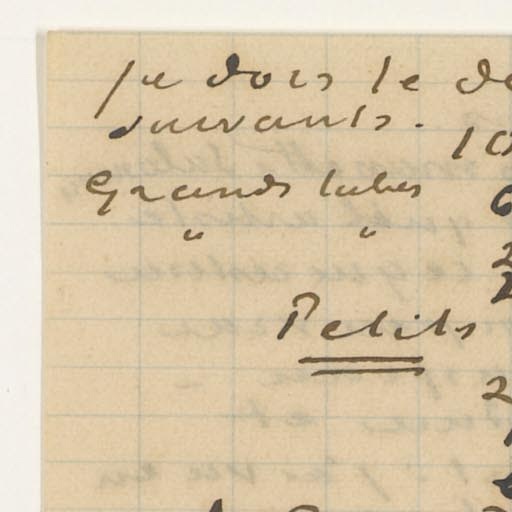 je dois te de
suivants.
10
Grands tubes 6
" " 2
Petits
2